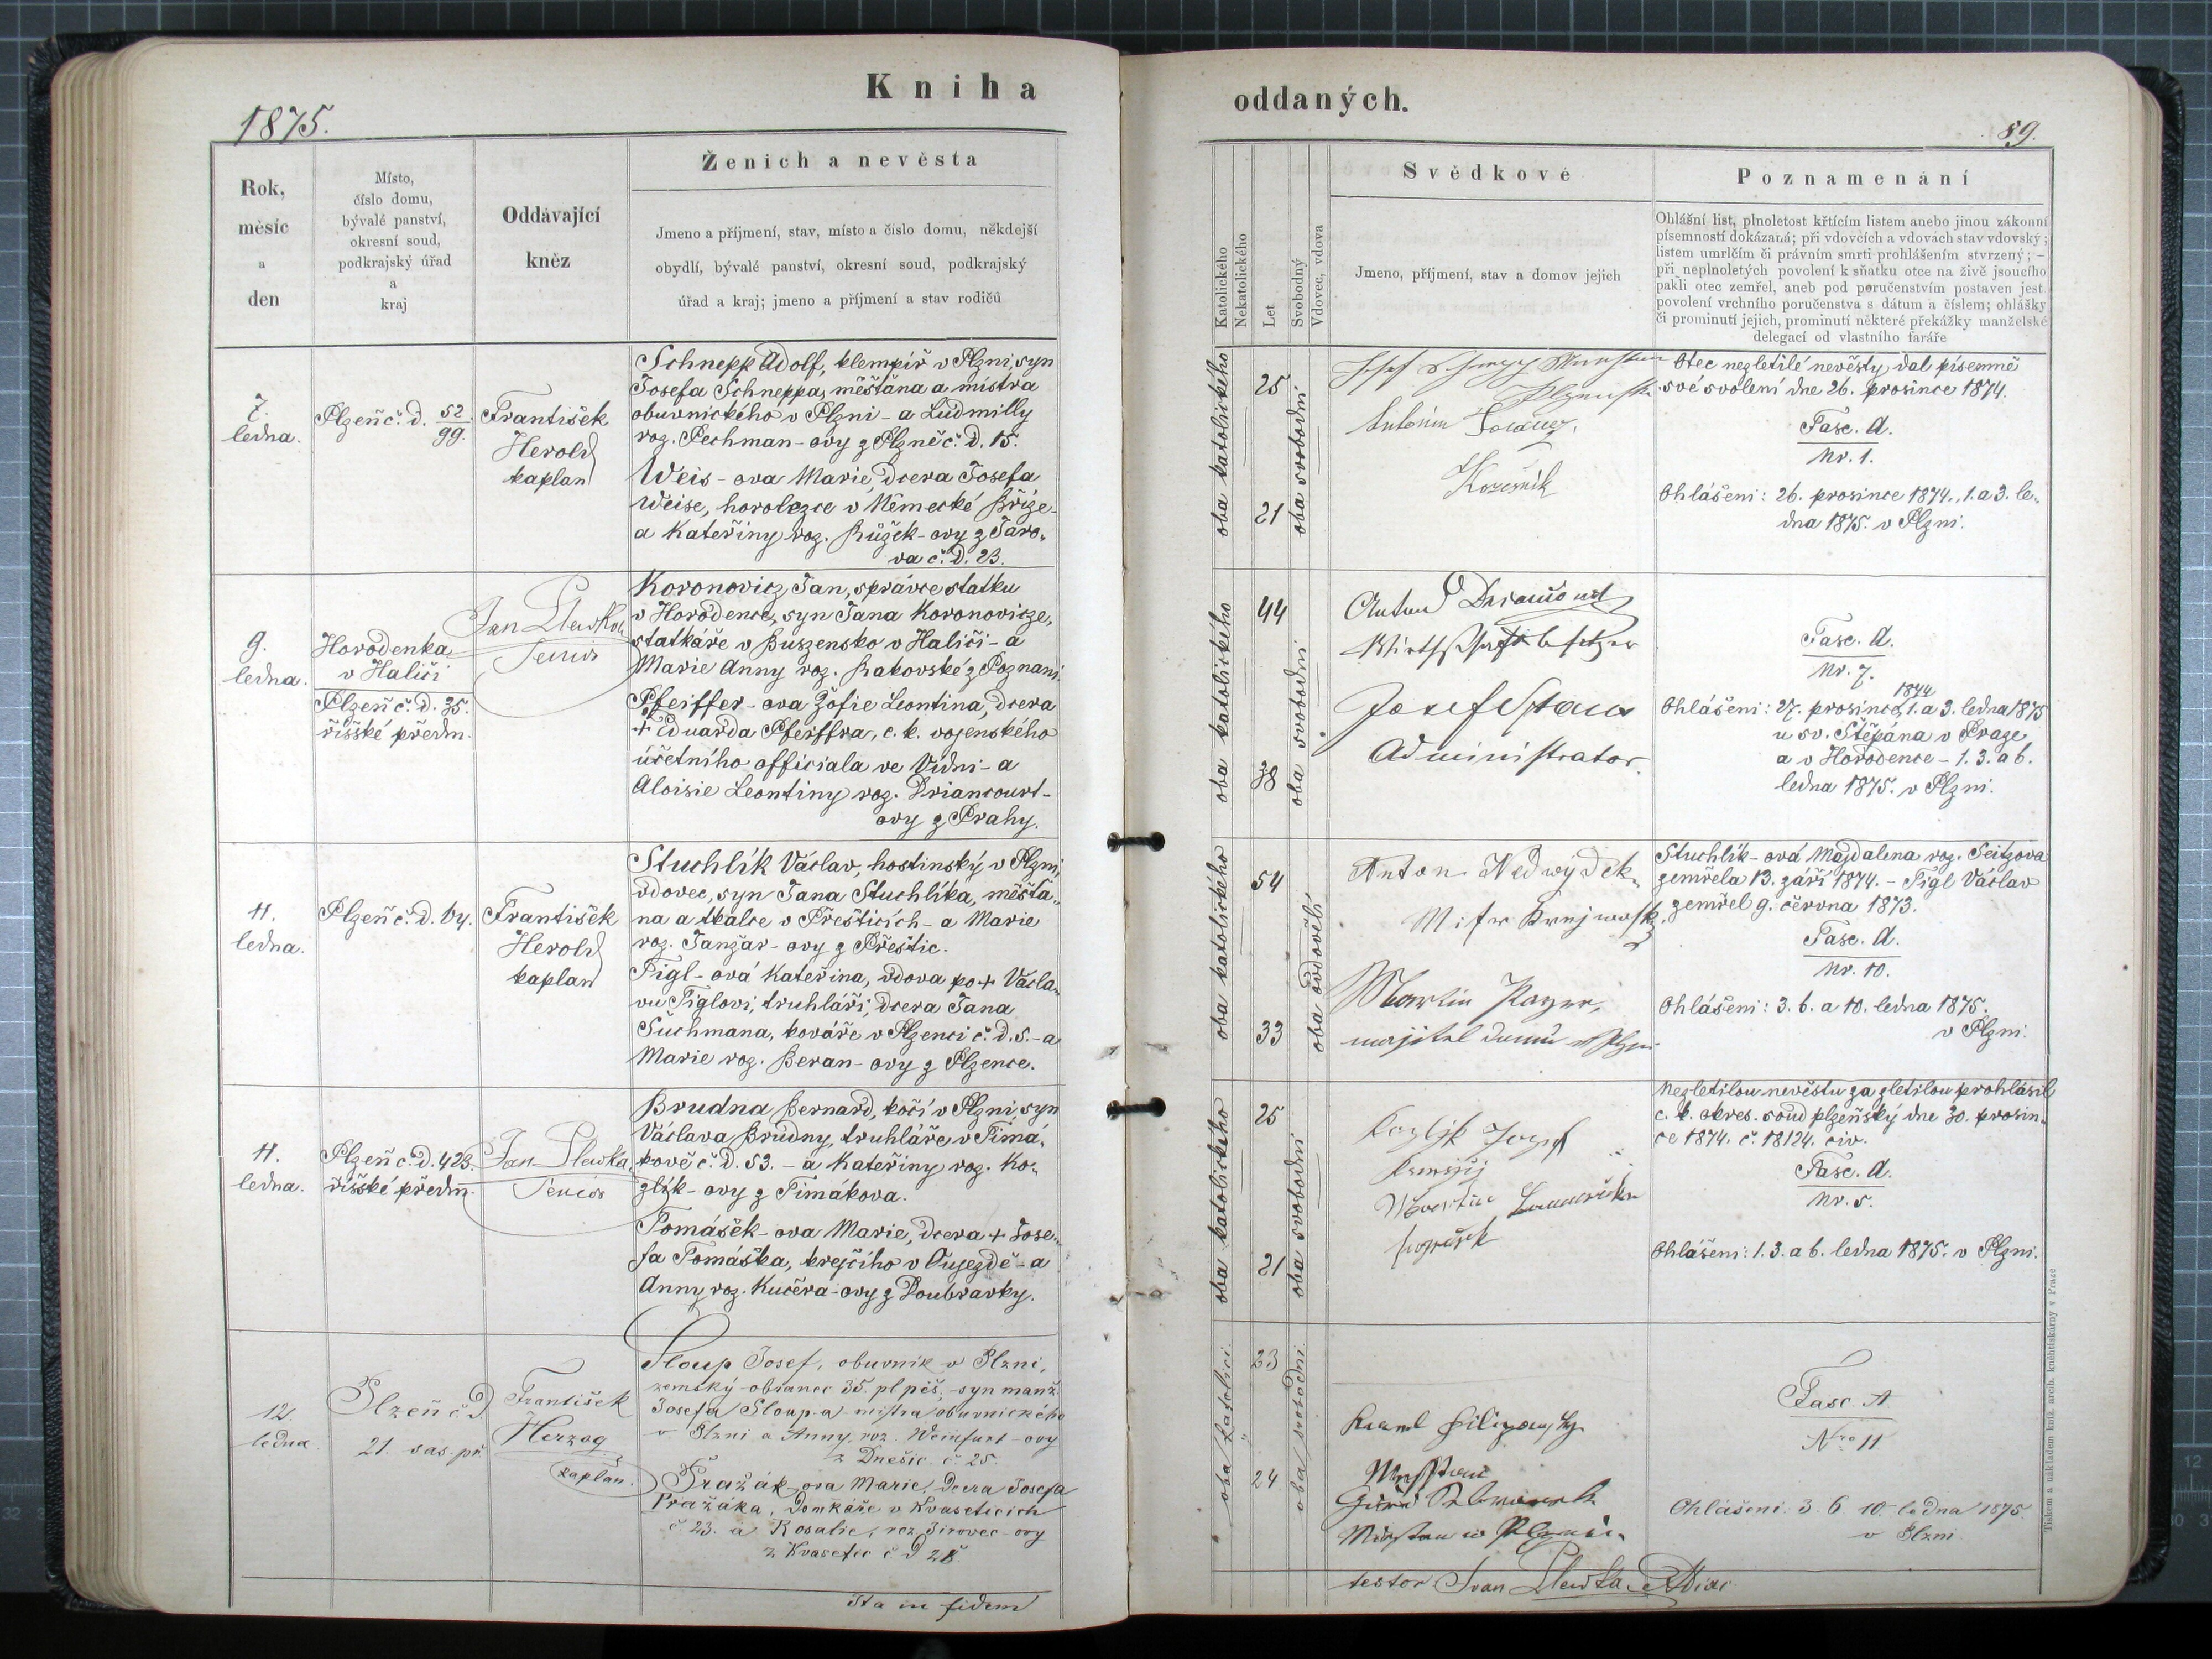 Kniha
oddaných.
1875.
89.
Rok,
měsíc
a
den
Místo,
číslo domu,
bývalé panství,
okresní soud,
podkrajský úřad
a
kraj
Oddávající
kněz
Ženich a nevěsta
Jmeno a příjmení, stav, místo a číslo domu, někdejší
obydlí, bývalé panství, okresní soud, podkrajský
úřad a kraj; jmeno a příjmení a stav rodičů
Katolického
Nekatolického
Let
Svobodný
Vdovec, vdova
Svědkové
Jmeno, příjmení, stav a domov jejich
Poznamenání
Ohlášní list, plnoletost křticím listem anebo jinou zákonní
písemností dokázaná; při vdovcích a vdovách stav vdovský;
listem umrlčím či právním smrti prohlášením stvrzený; –
při neplnoletých povolení k sňatku otce na živě jsoucího
pakli otec zemřel, aneb pod poručenstvím postaven jest
povolení vrchního poručenstva s dátum a číslem; ohlášky
či prominutí jejich, prominutí některé překážky manželské
delegací od vlastního faráře
7.
ledna.
Plzeň č. d. 52/99.
František
Herold
kaplan
Schnepp Adolf, klempíř v Plzni, syn
Josefa Schneppa, měšťána a mistra
obuvnického v Plzni - a Ludmilly
roz. Pechman-ovy z Plzně č. d. 15.
Weis-ova Marie, dcera Josefa
Weise, horolezce v Německé Bříze-
a Kateřiny roz. Růžek-ovy z Táro-
va č. d. 23.
oba katolického
25
21
oba svobodni
Antonín
Kožešník
Otec nezletilé nevěsty dal písemně
své svolení dne 26. prosince 1874.
Fasc. A.
Nr. 1.
Ohlášeni: 26. prosince 1874., 1. a 3. le-
dna 1875. v Plzni.
9.
ledna.
Horodenka
v Haliči
Plzeň č. d. 35.
říšské předm.
Jan Plewka
Senior
Koronovicz Jan, správce statku
v Horodence, syn Jana Koronovicze,
statkáře v Buszensko v Haliči - a
Marie Anny roz. Rakovské z Poznani.
Pfeiffer-ova Žofie Leontina, dcera
+ Eduarda Pfeiffra, c. k. vojenského
účetního officiala ve Vídni - a
Aloisie Leontiny roz. Driancourt-
ovy z Prahy.
oba katolického
44
38
oba svobodni
Anton
Wirthschaftsbesitzer
Josef
Administrator.
Fasc. A.
Nr. 7.
1874
Ohlášeni: 27. prosince, 1. a 3. ledna 1875
u sv. Štěpána v Praze
a v Horodence - 1. 3. a 6.
ledna 1875. v Plzni.
11.
ledna.
Plzeň č. d. 64.
František
Herold
kaplan
Stuchlík Václav, hostinský v Plzni,
vdovec, syn Jana Stuchlíka, měšťa-
na a tkalce v Přešticích - a Marie
roz. Janžar-ovy z Přeštic.
Tigl-ová Kateřina, vdova po + Václa-
vu Tiglovi, truhláři, dcera Jana
Suchmana, kováře v Plzenci č. d. 5. - a
Marie roz. Beran-ovy z Plzence.
oba katolického
54
33
oba ovdovělí
Anton Nedwýdek
Martin
majitel domu
Stuchlík-ová Majdalena roz. Seitzova
zemřela 13. září 1874. - Tigl Václav
zemřel 9. června 1873.
Fasc. A.
Nr. 10.
Ohlášeni: 3. 6. a 10. ledna 1875.
v Plzni.
11.
ledna.
Plzeň č. d. 423.
říšské předm.
Jan Plewka
Senior
Brudna Bernard, kočí v Plzni, syn
Václava Brudny, truhláře v Timá-
kově č. d. 53. - a Kateřiny roz. Ko-
zlík-ovy z Timákova.
Tomášek-ova Marie, dcera + Jose-
fa Tomáška, krejčího v Oujezdě - a
Anny roz. Kučera-ovy z Doubravky.
oba katolického
25
21
oba svobodni
Kozlik Jozef
Martin
Nezletilou nevěstu za zletilou prohlásil
c. k. okres. soud plzeňský dne 30. prosin-
ce 1874. č. 18124. civ.
Fasc. A.
Nr. 5.
Ohlášeni: 1. 3. a 6. ledna 1875. v Plzni.
12.
ledna
Plzeň č. d.
21. sas. př.
František
Herzog
kaplan.
Sloup Josef, obuvník v Plzni,
zemský obranec 35. pl pěš, syn manž.
Josefa Sloup-a mistra obuvnického
v Plzni a Anny, roz. Weinfurt-ovy
z Dnešic č. 25.
Pražák-ova Marie, Dcera Josefa
Pražáka, Domkáře v Kvaseticích
č. 23. a Rosalie, roz. Jirovec-ovy
z Kvasetic č. d 28
oba katolíci
23
24
oba svobodni
Karel
Fasc. A
Nro 11
Ohlášeni. 3. 6 10. ledna 1875.
v Plzni
Ita in fidem
testor Ivan Plewka
Tiskem a nákladem kníž. arcib. kněhtiskárny v Praze